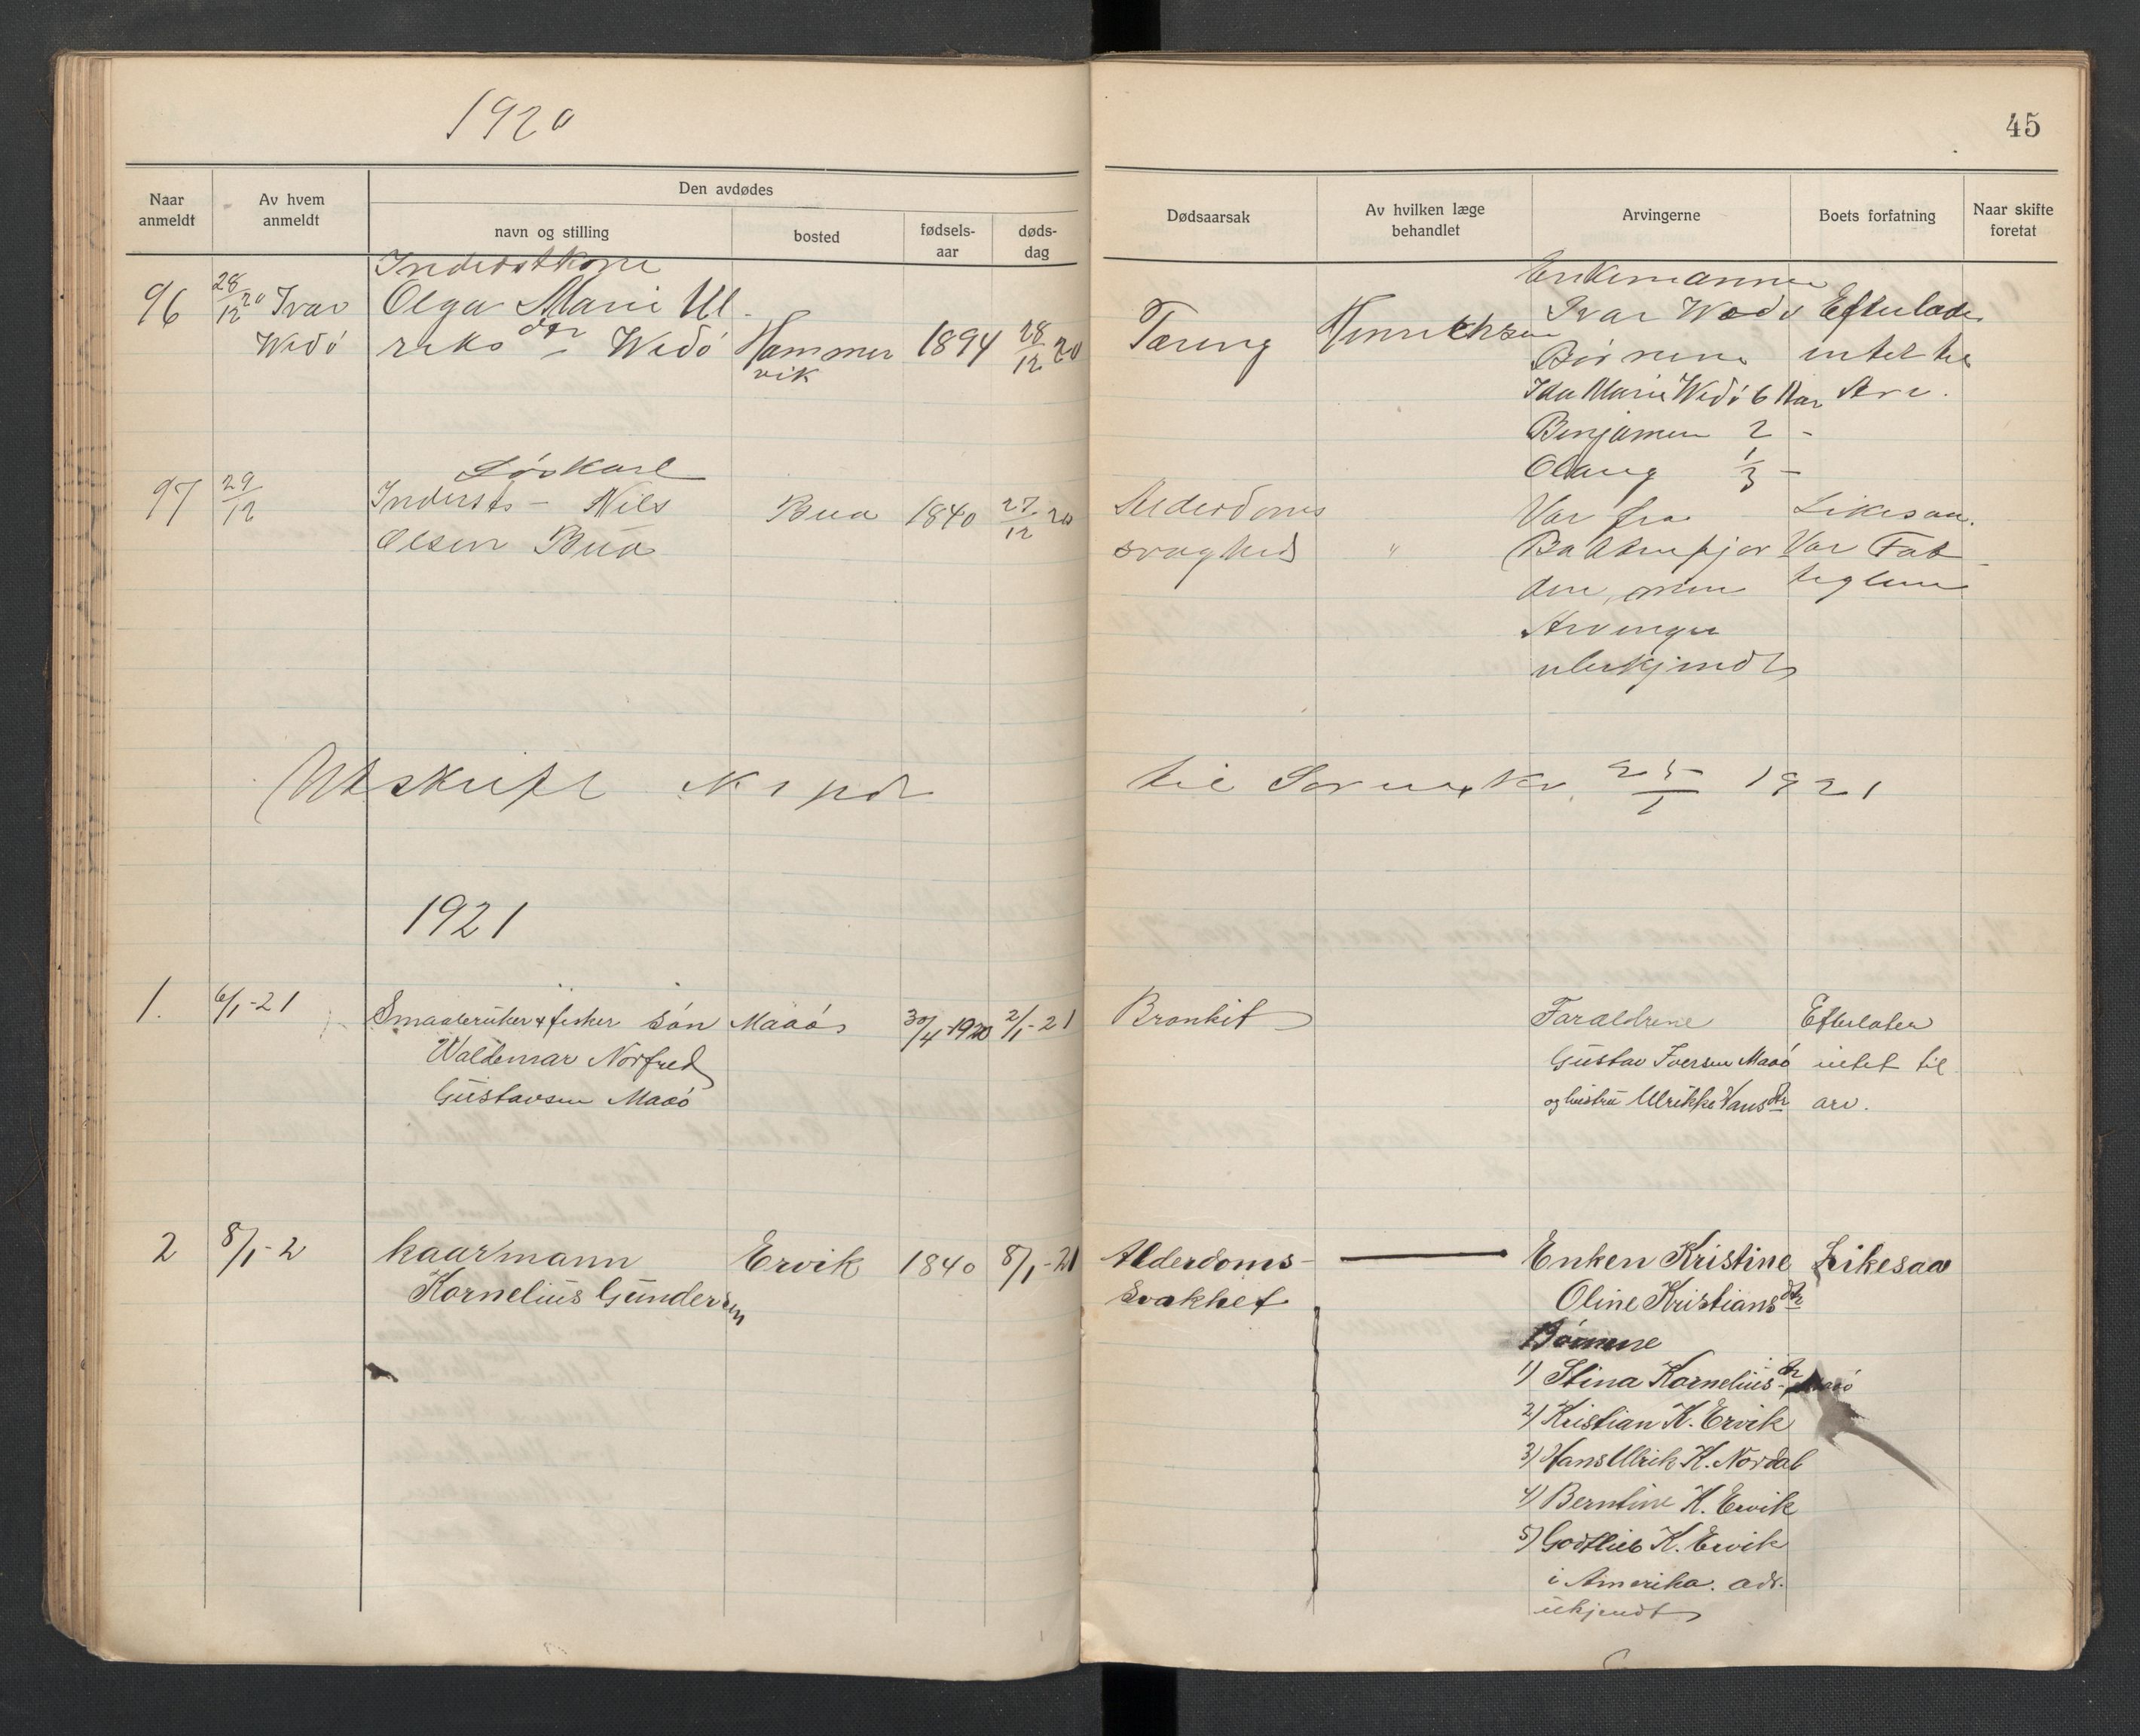 1920
45
Naar anmeldt
Av hvem anmeldt
Den avdødes
navn og stilling
bosted
fødsels-aar
døds-dag
Dødsaarsak
Av hvilken læge behandlet
Arvingerne
Boets forfatning
Naar skifte foretat
96 28/12 20 Ivar
Wedø
Inderstkone
Olga Marie Ul-
riksdtr Wedø
Hammer
vik
1894 28/12 20
Tæring
Henrichsen
Enkemannen
Ivar Wedø
Børnene
Ida Marie Wedø 6 Aar
Benjamen 2 -
Olaug 1/3 -
Efterlader
intet til
Arv.
97 29/12
Løskarl
Inderst - Nils
Olsen Bua
Bua 1840 27/12 20
Alderdoms
svaghed
"
Var fra
den, men
Arvinger
ubekjendt
Likesaa.
Var Fat-
tiglem
Utskrift
til 25/1 1921
1921
1. 6/1-21
Smaabruker & fisker søn
Waldemar Norfred
Gustavsen Maaø
Maaø 30/4-1920 2/1-21
Bronkit
Foraldrene
Gustav Iversen Maaø
og hustru Ulrikke Hansdtr
Efterlater
intet til
arv.
2 8/1-2
kaarmann
Kornelius Gundersen
Ervik 1840 8/1-21
Alderdoms-
svakhet
Enken Kristine
Oline Kristiansdtr
Børnene
1) Stina Korneliusdtr Maaø
2) Kristian K. Ervik
3) Hans Ulrik K. Nordal
4) Berntine K. Ervik
5) Godtlieb K. Ervik
i Amerika. adr.
ukjendt
Likesaa